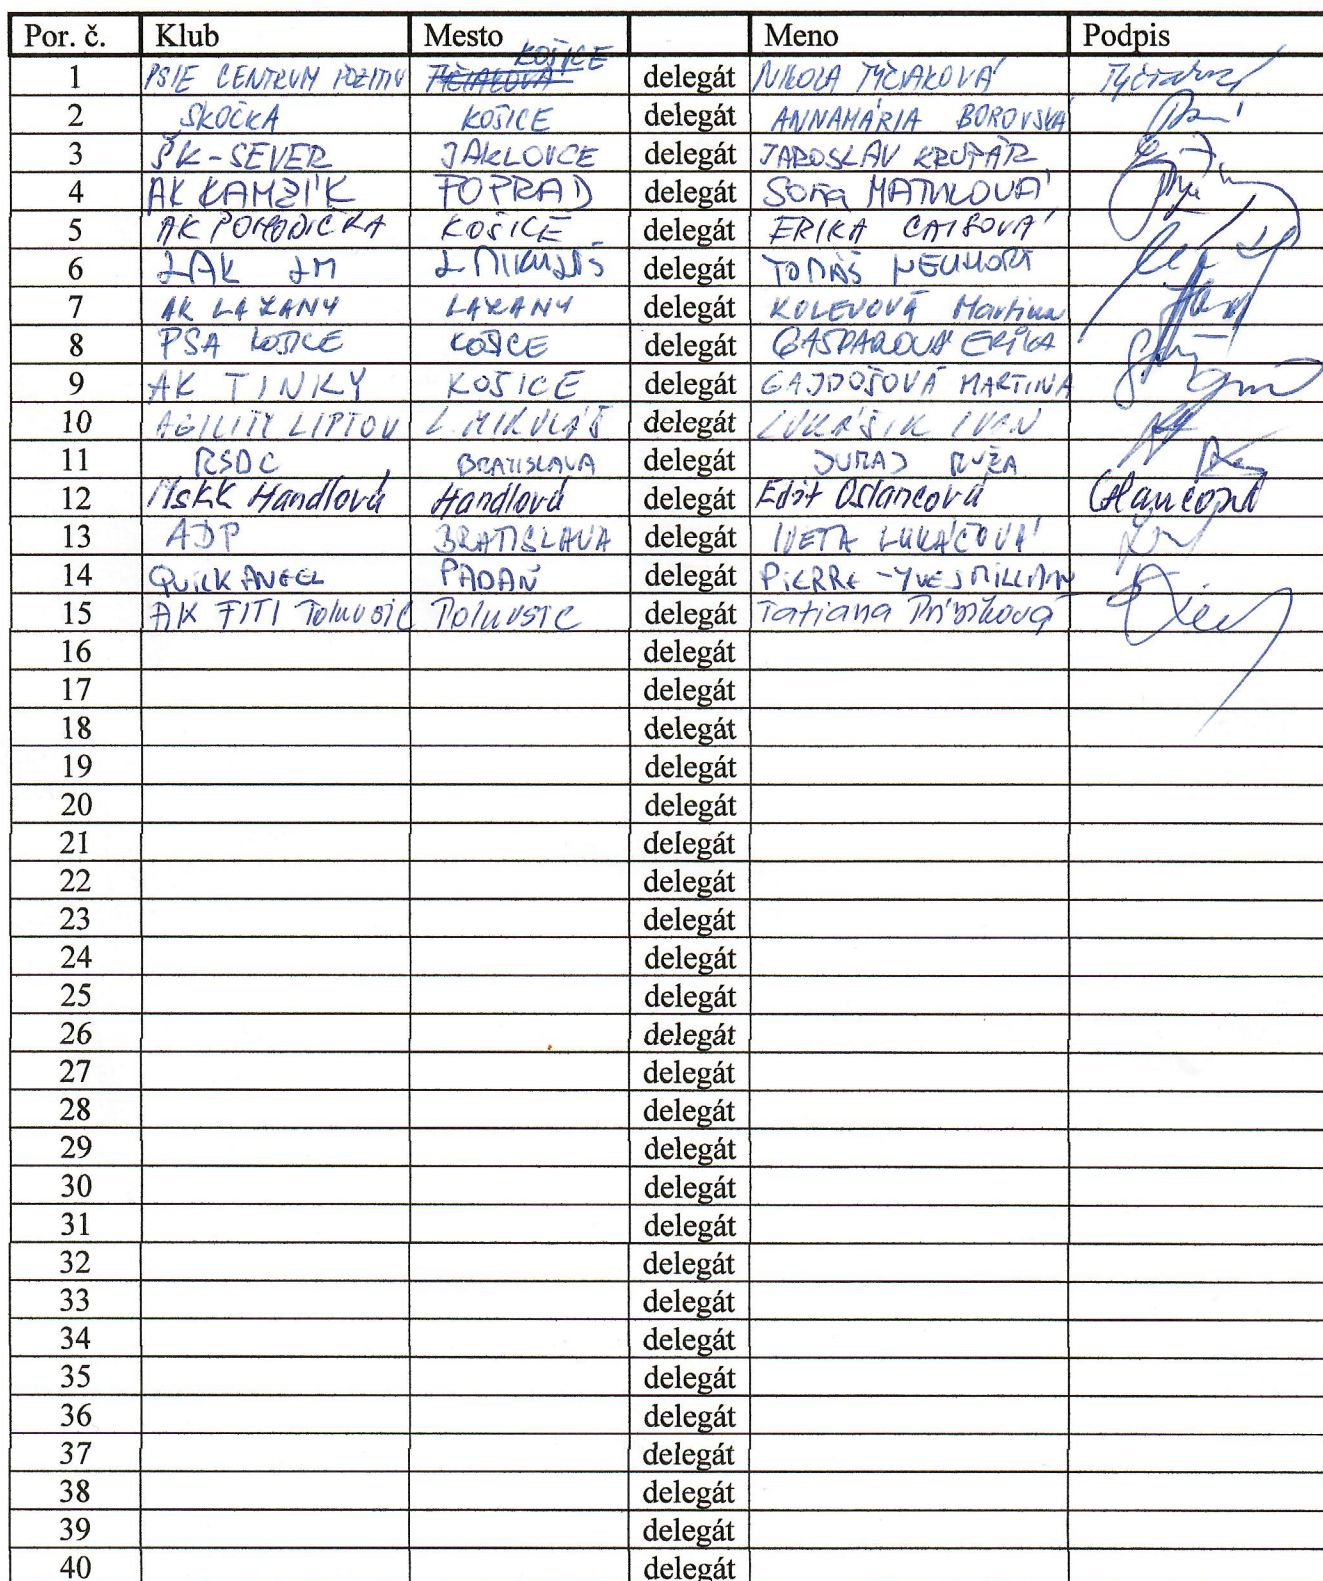 Por. č. Klub Mesto Meno Podpis
1 PSIE CENTRUM POZITIV KOŠICE delegát NIKOLA TYČIAKOVÁ
2 SKOČKA KOŠICE delegát ANNAMÁRIA BOROVSKÁ
3 ŠK-SEVER JAKLOVCE delegát JAROSLAV KRUPÁR
4 AK KAMZÍK POPRAD delegát SOňa MATULOVÁ
5 AK POHODIČKA KOŠICE delegát ERIKA
6 LAK LM L. MIKULÁŠ delegát TOMÁŠ
7 AK LAZANY LAZANY delegát KOLEVOVÁ Martina
8 PSA KOŠICE KOŠICE delegát GAŠPAROVÁ ERIKA
9 AK TINKY KOŠICE delegát GAJDOŠOVÁ MARTINA
10 AGILITY LIPTOV L. MIKULÁŠ delegát LUKÁŠIK IVAN
11 RSDC BRATISLAVA delegát JURAJ RUŽA
12 MsKK Handlová Handlová delegát Edit Oslancová
13 ADP BRATISLAVA delegát IVETA LUKÁČOVÁ
14 QUICK ANGEL PADÁŇ delegát PIERRE-YVES
15 AK FITI delegát Tatiana
16 delegát
17 delegát
18 delegát
19 delegát
20 delegát
21 delegát
22 delegát
23 delegát
24 delegát
25 delegát
26 delegát
27 delegát
28 delegát
29 delegát
30 delegát
31 delegát
32 delegát
33 delegát
34 delegát
35 delegát
36 delegát
37 delegát
38 delegát
39 delegát
40 delegát